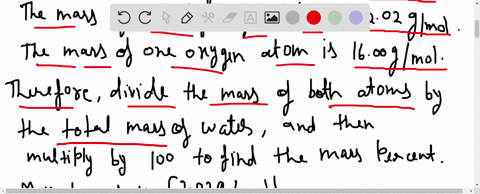 The mass 2.02 g/mol.
The mass of one oxygen atom is 16.00g/mol.
Therefore, divide the mass of both atoms by
the total mass of water, and then
multiply by 100 to find the mass percent.